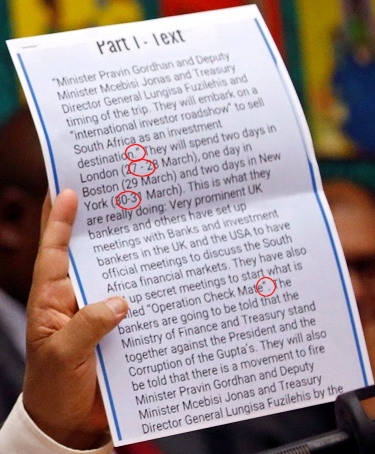 Part 1 - Text
"Minister Pravin Gordhan and Deputy
Minister Mcebisi Jonas and Treasury
Director General Lungisa Fuzilehis and
timing of the trip. They will embark on a
"international investor roadshow" to sell
South Africa as an investment
destination." They will spend two days in
London (27 - 28 March), one day in
Boston (29 March) and two days in New
York (30-31 March). This is what they
are really doing: Very prominent UK
bankers and others have set up
meetings with Banks and investment
bankers in the UK and the USA to have
official meetings to discuss the South
Africa financial markets. They have also
up secret meetings to start what is
"Operation Check Mate". The
bankers are going to be told that the
Ministry of Finance and Treasury stand
together against the President and the
Corruption of the Gupta's. They will also
be told that there is a movement to fire
Minister Pravin Gordhan and Deputy
Minister Mcebisi Jonas and Treasury
Director General Lungisa Fuzilehis by the